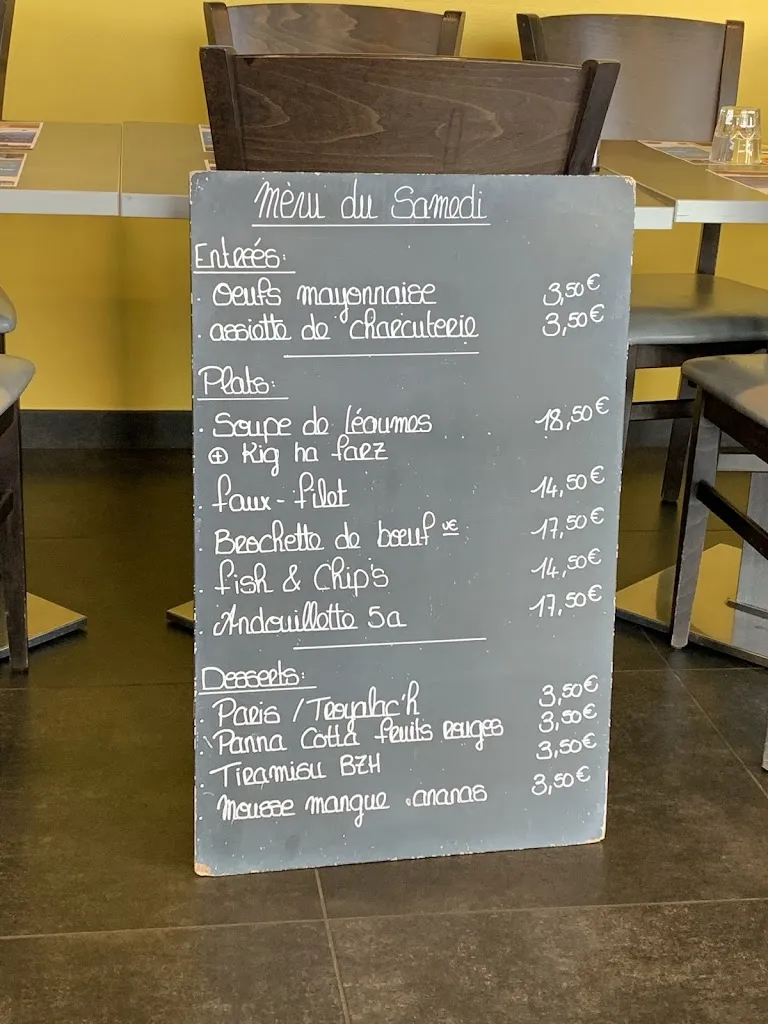 Mènu du Samedi
Entreés:
. Oeufs mayonnaise 3,50€
. assiette de charcuterie 3,50€
Plats:
. Soupe de légumes 18,50€
⊕ Kig ha farz
. faux-filet 14,50€
. Brochette de bœuf UE 17,50€
. fish & Chip's 14,50€
. Andouillette 5a 17,50€
Desserts:
. Paris / 3,50€
. Panna Cotta fruits rouges 3,50€
. Tiramisu BZH 3,50€
. Mousse mangue .ananas 3,50€